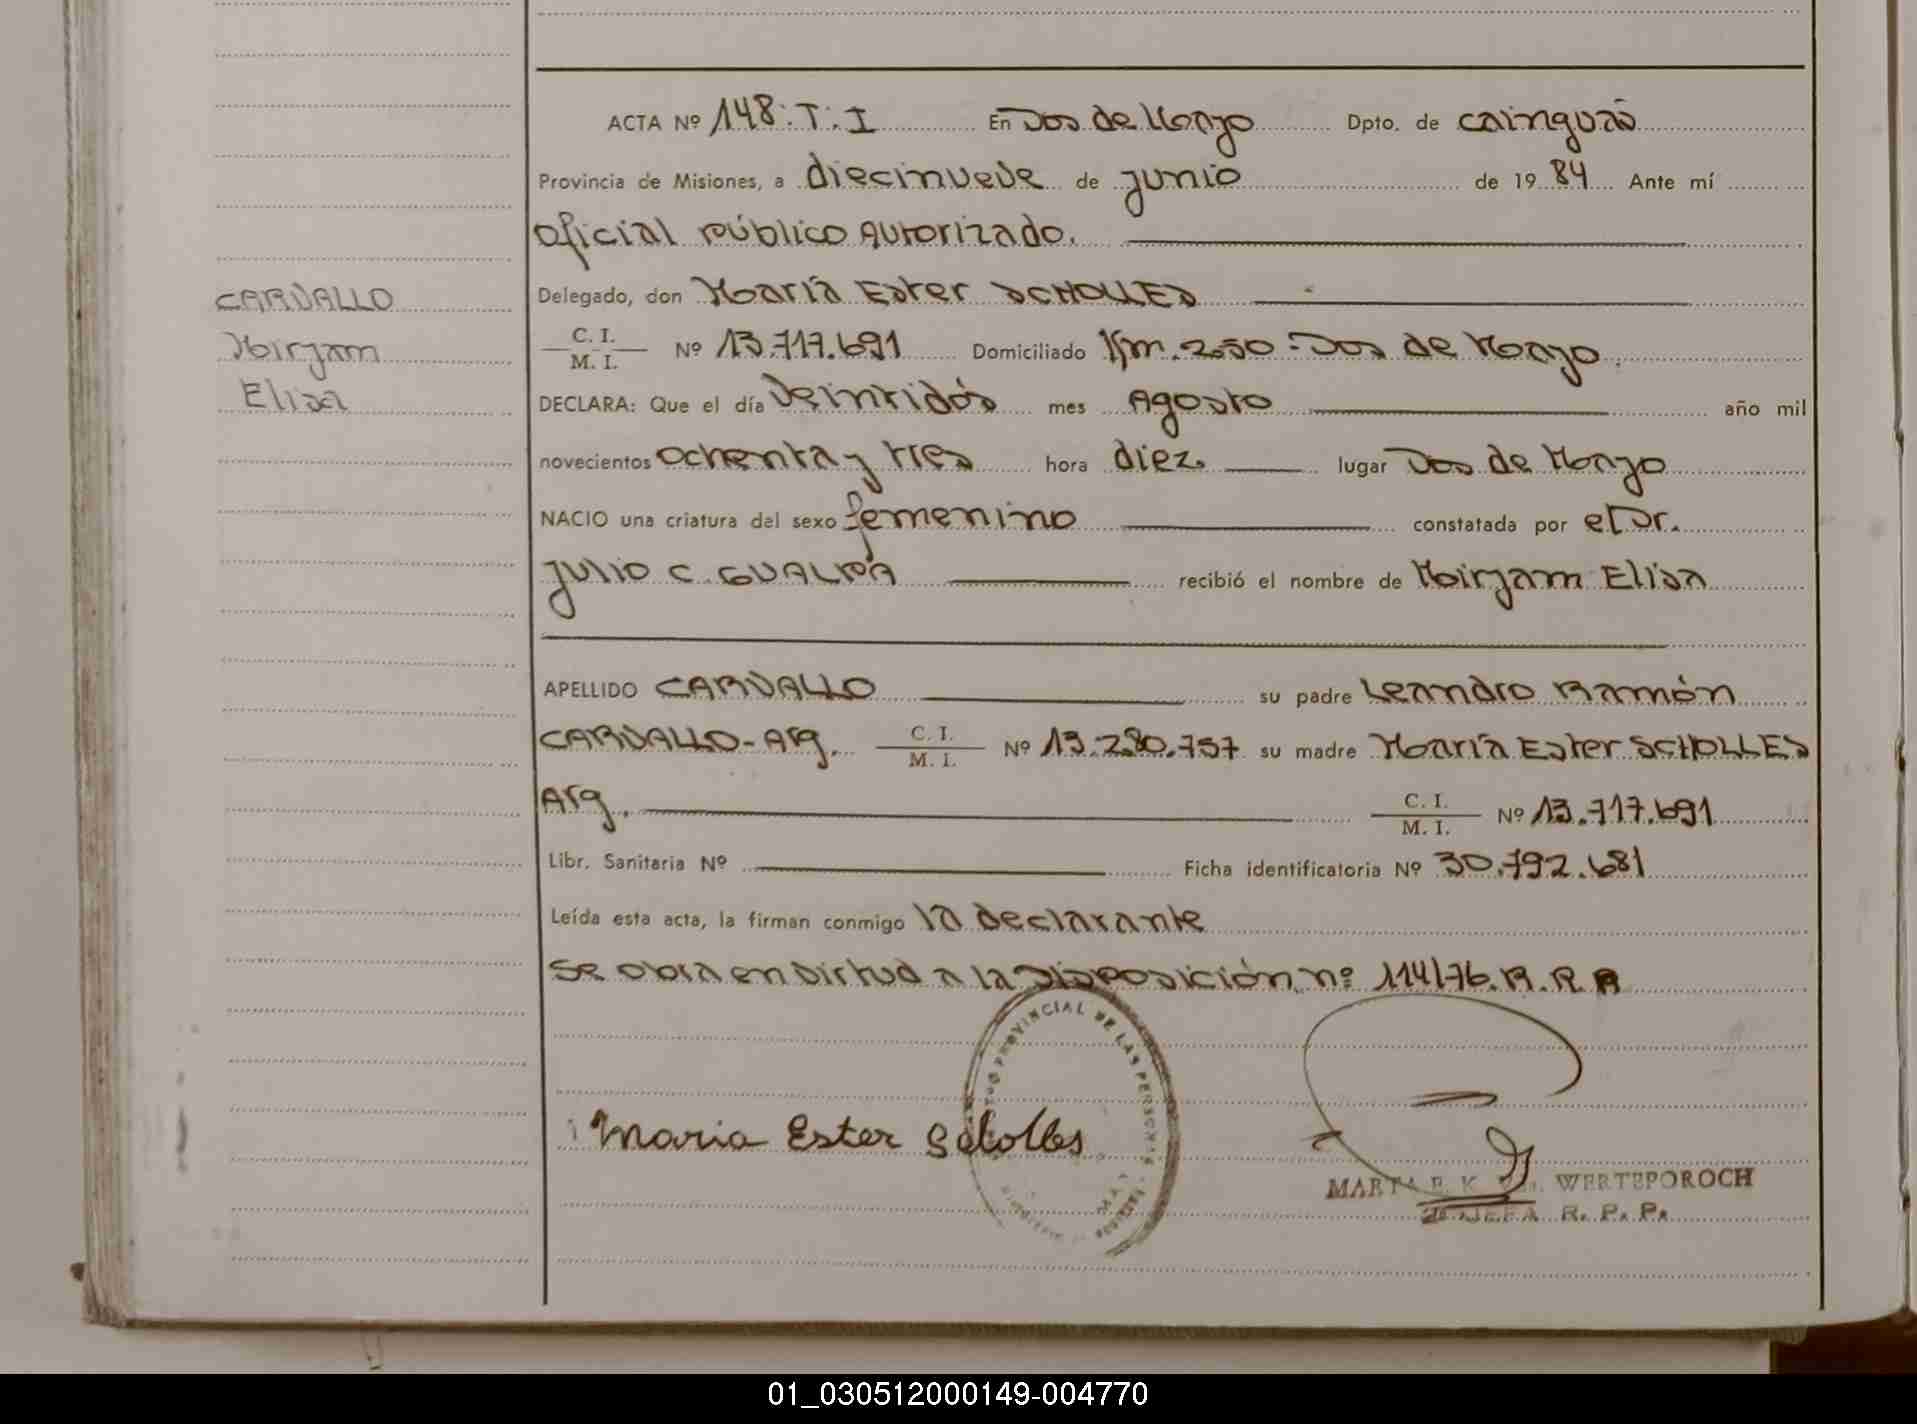 ACTA Nº 148.T.I En Dos de Mayo Dpto. de Cainguás
Provincia de Misiones, a diecinueve de junio de 19 84 Ante mí
Oficial Público Autorizado.
CARVALLO
Delegado, don María Ester SCHOLLES
Mirjam
C. I.
M. I. Nº 13.717.691 Domiciliado Km. 250 - Dos de Mayo.
Elisa
DECLARA: Que el día Veintidós mes Agosto año mil
novecientos ochenta y tres hora diez. lugar Dos de Mayo
NACIO una criatura del sexo femenino constatada por el Dr.
Julio C. GUALPA recibió el nombre de Mirjam Elisa
APELLIDO CARVALLO su padre Leandro Ramón
CARVALLO - Arg. C. I.
M. I. Nº 13.280.757 su madre María Ester SCHOLLES
Arg. C. I.
M. I. Nº 13.717.691
Libr. Sanitaria Nº Ficha identificatoria Nº 30.792.681
Leída esta acta, la firman conmigo la declarante
se obra en virtud a la Disposición nº 114/76. R. P. P
PROVINCIAL DE LAS PERSONAS
Maria Ester Scholles
MARTA E. K. WERTEPOROCH
JEFA R. P. P.
01_030512000149-004770